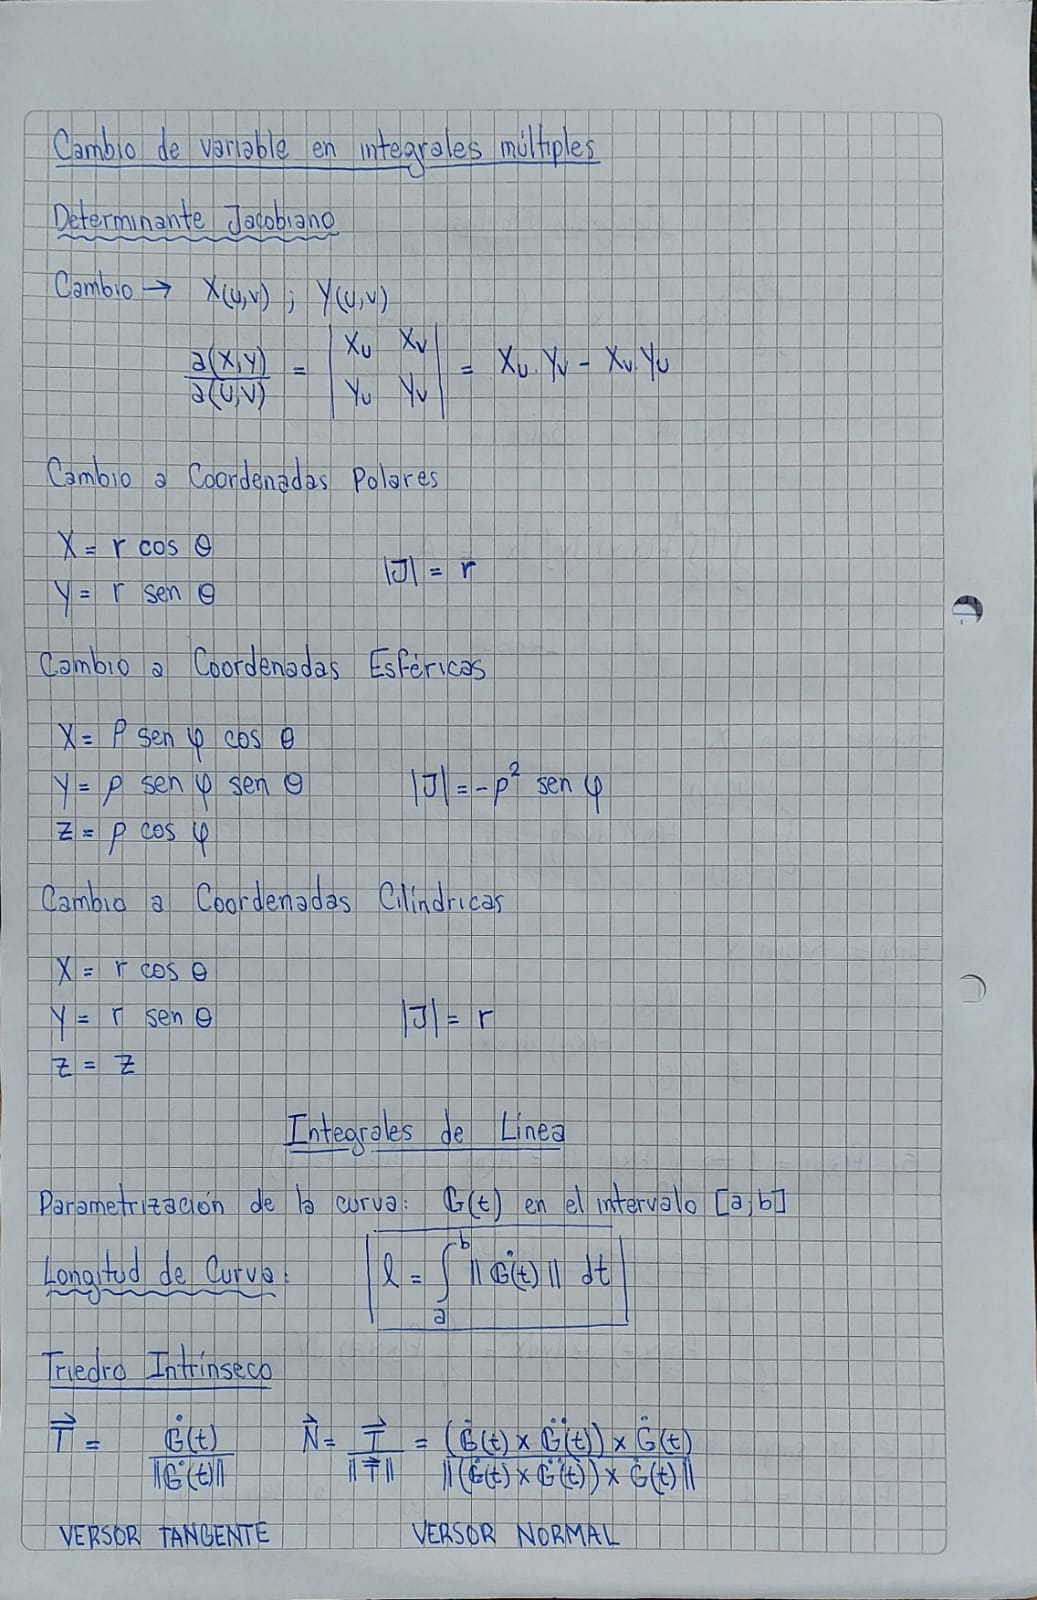 Cambio de variable en integrales múltiples
Determinante Jacobiano
Cambio → X(u,v) ; Y(u,v)
∂(X,Y)/∂(U,V) = |Xu Xv; Yu Yv| = Xu.Yv - Xv.Yu
Cambio a Coordenadas Polares
X = r cos θ
Y = r sen θ
|J| = r
Cambio a Coordenadas Esféricas
X = ρ sen φ cos θ
Y = ρ sen φ sen θ
Z = ρ cos φ
|J| = -ρ² sen φ
Cambio a Coordenadas Cilíndricas
X = r cos θ
Y = r sen θ
Z = Z
|J| = r
Integrales de Línea
Parametrización de la curva: G(t) en el intervalo [a;b]
Longitud de Curva: l = ∫ₐᵇ ||Ġ(t)|| dt
Triedro Intrínseco
T⃗ = Ġ(t)/||Ġ(t)|| N⃗ = T⃗/||T⃗|| = (Ġ(t) x G̈(t)) x Ġ(t)/||(Ġ(t) x G̈(t)) x Ġ(t)||
VERSOR TANGENTE VERSOR NORMAL